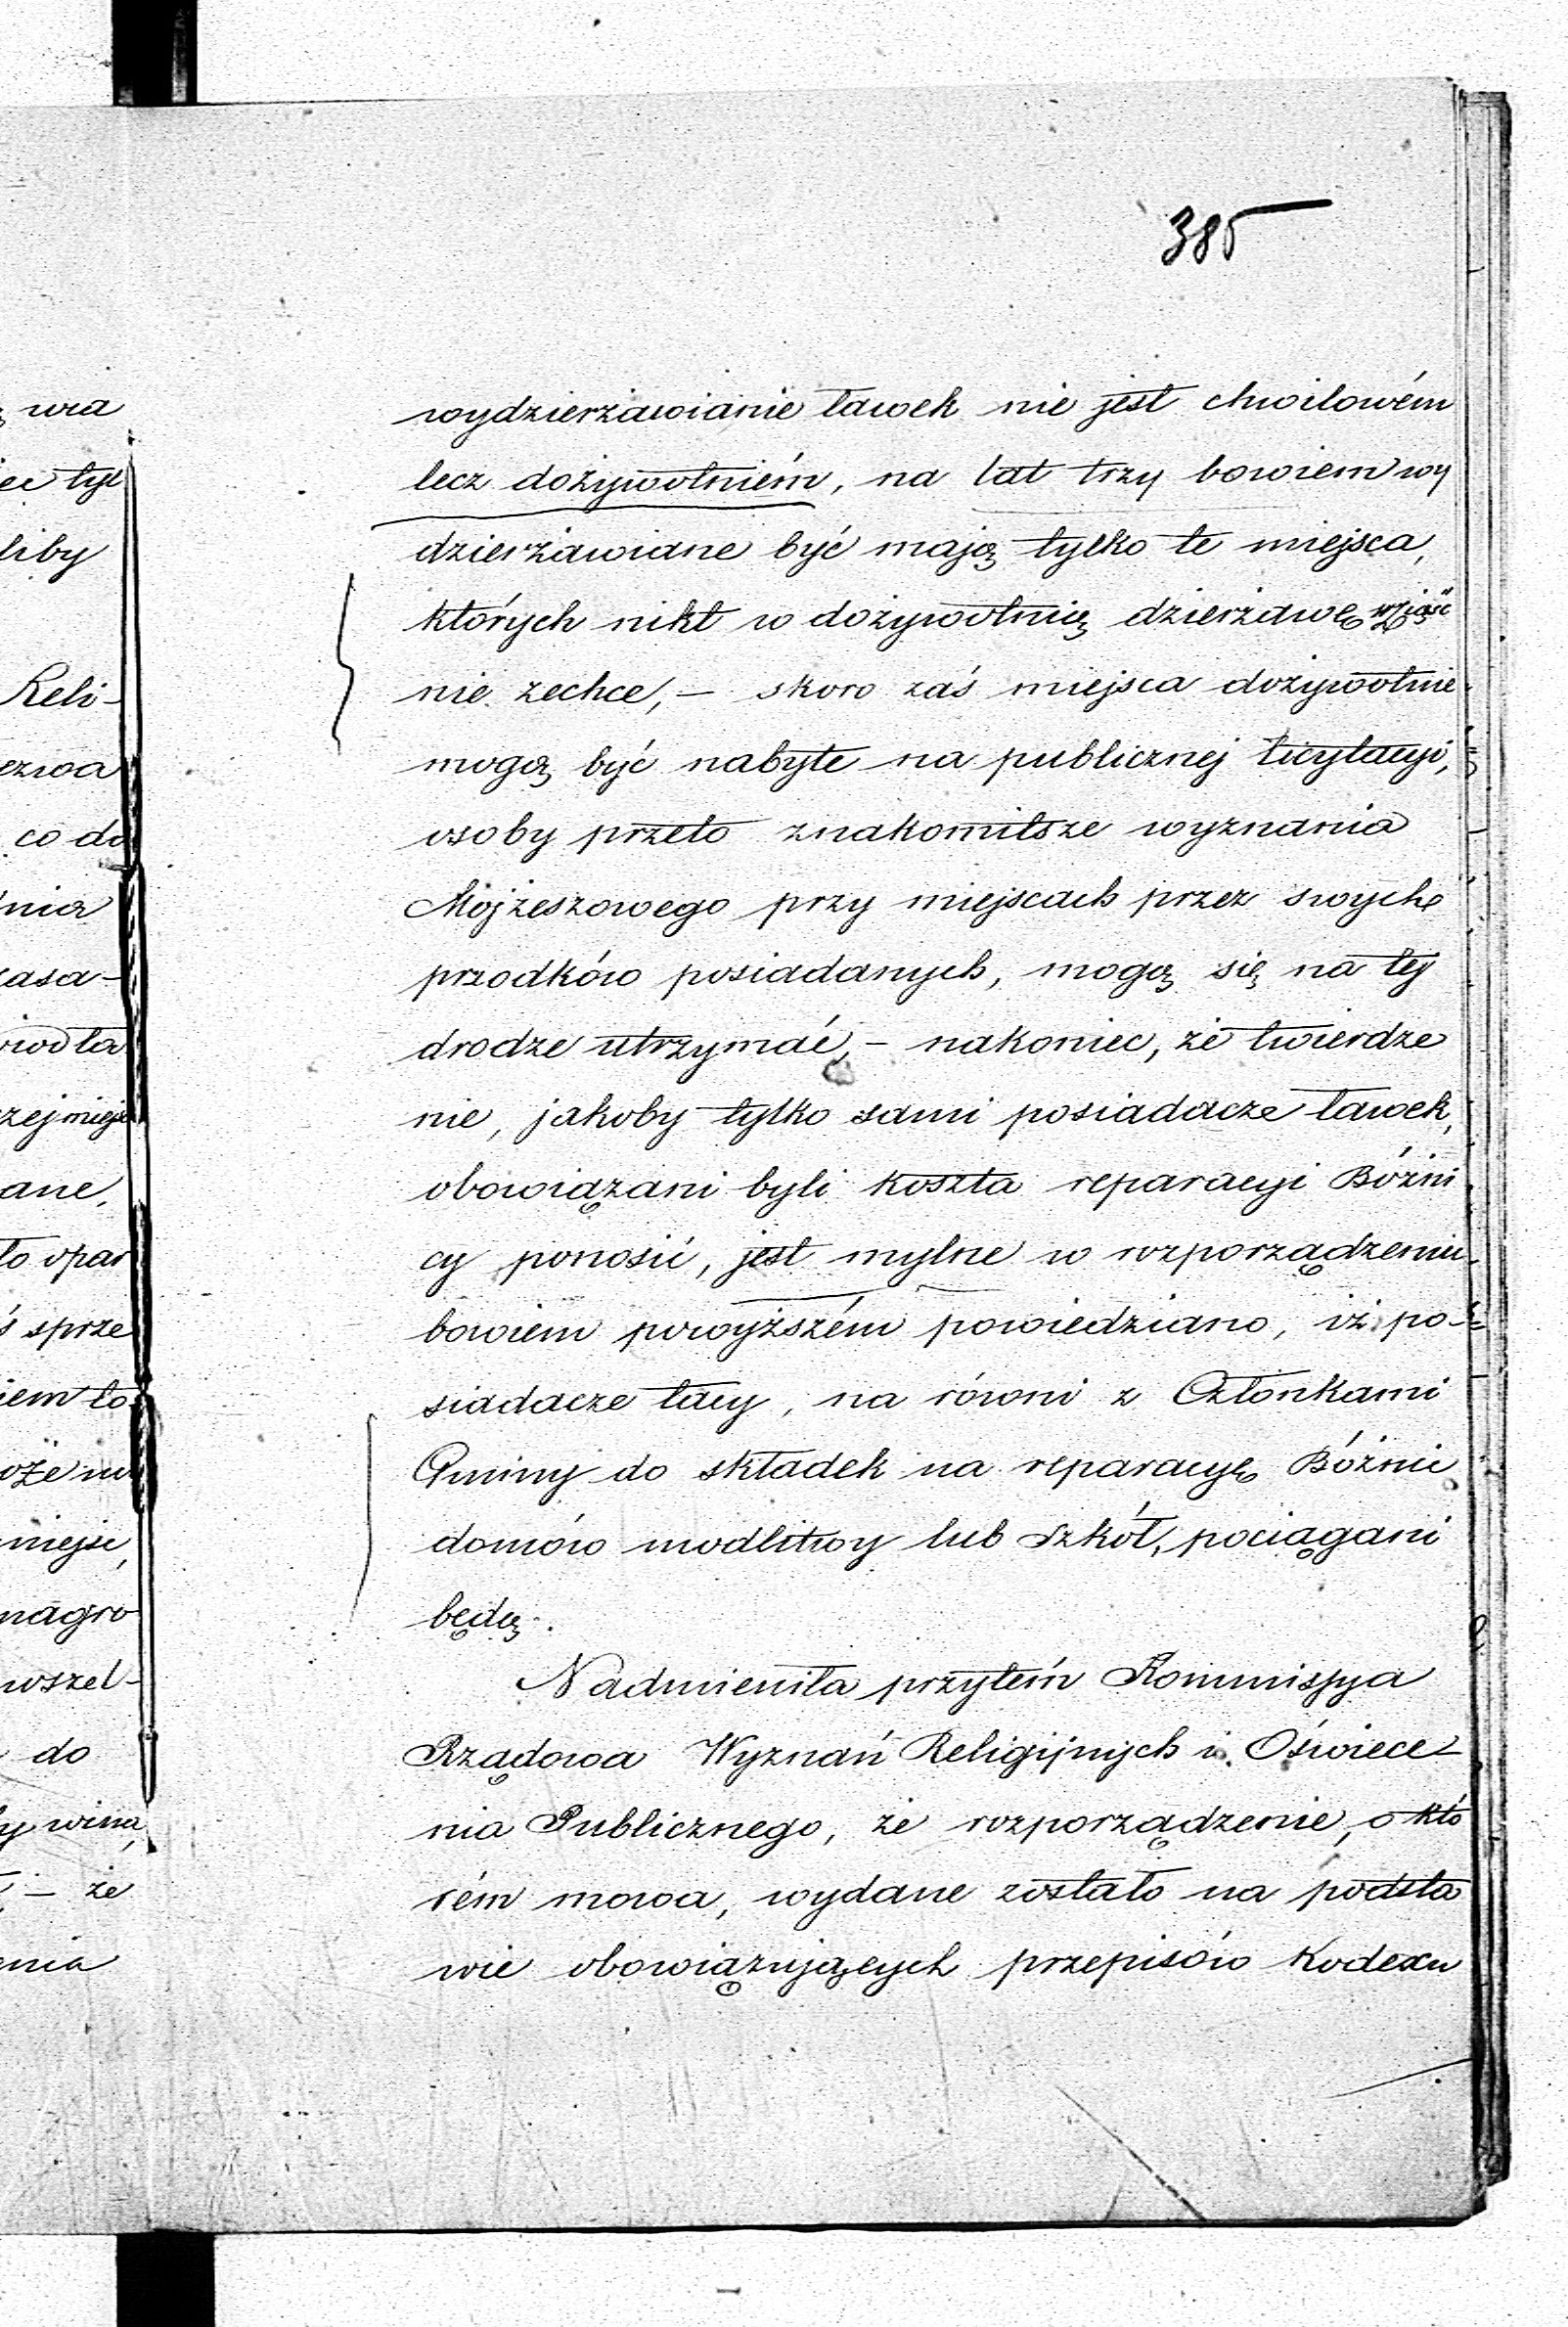 385
wydzierzawianie ławek nie jest chwilowém
lecz dożywotniém, na lat trzy bowiem wy
dzierżawiane być mają tylko te miejsca,
których nikt w dożywotnią dzierżawę wziąść
nie zechce, – skoro zaś miejsca dożywotnie
mogą być nabyte na publicznej licytacyi,
osoby przeto znakomitsze wyznania
Mojżeszowego przy miejscach przez swych
przodków posiadanych, mogą się na tej
drodze utrzymać, – nakoniec, że twierdze
nie, jakoby tylko sami posiadacze ławek,
obowiązani byli koszta reparacyi Bóżni
cy ponosić, jest mylne w rozporządzeniu
bowiem powyższém powiedziano, iż po-
siadacze tacy, na równi z Członkami
Gminy do składek na reparacyę Bóżnic
domów modlitwy lub Szkół, pociągani
będą.
Nadmieniła przytém Kommissya
Rządowa Wyznań Religijnych i Oświece-
nia Publicznego, że rozporządzenie, o któ
rém mowa, wydane zostało na podsta
wie obowiązujących przepisów Kodexu
wia
tyl
liby
Reli-
ezwa
co do
nia
zasa-
zej miejsc
ane,
to opar
ś sprze
iem to
oże
miejsc,
nagro
wszel-
do
wina,
– że
enia